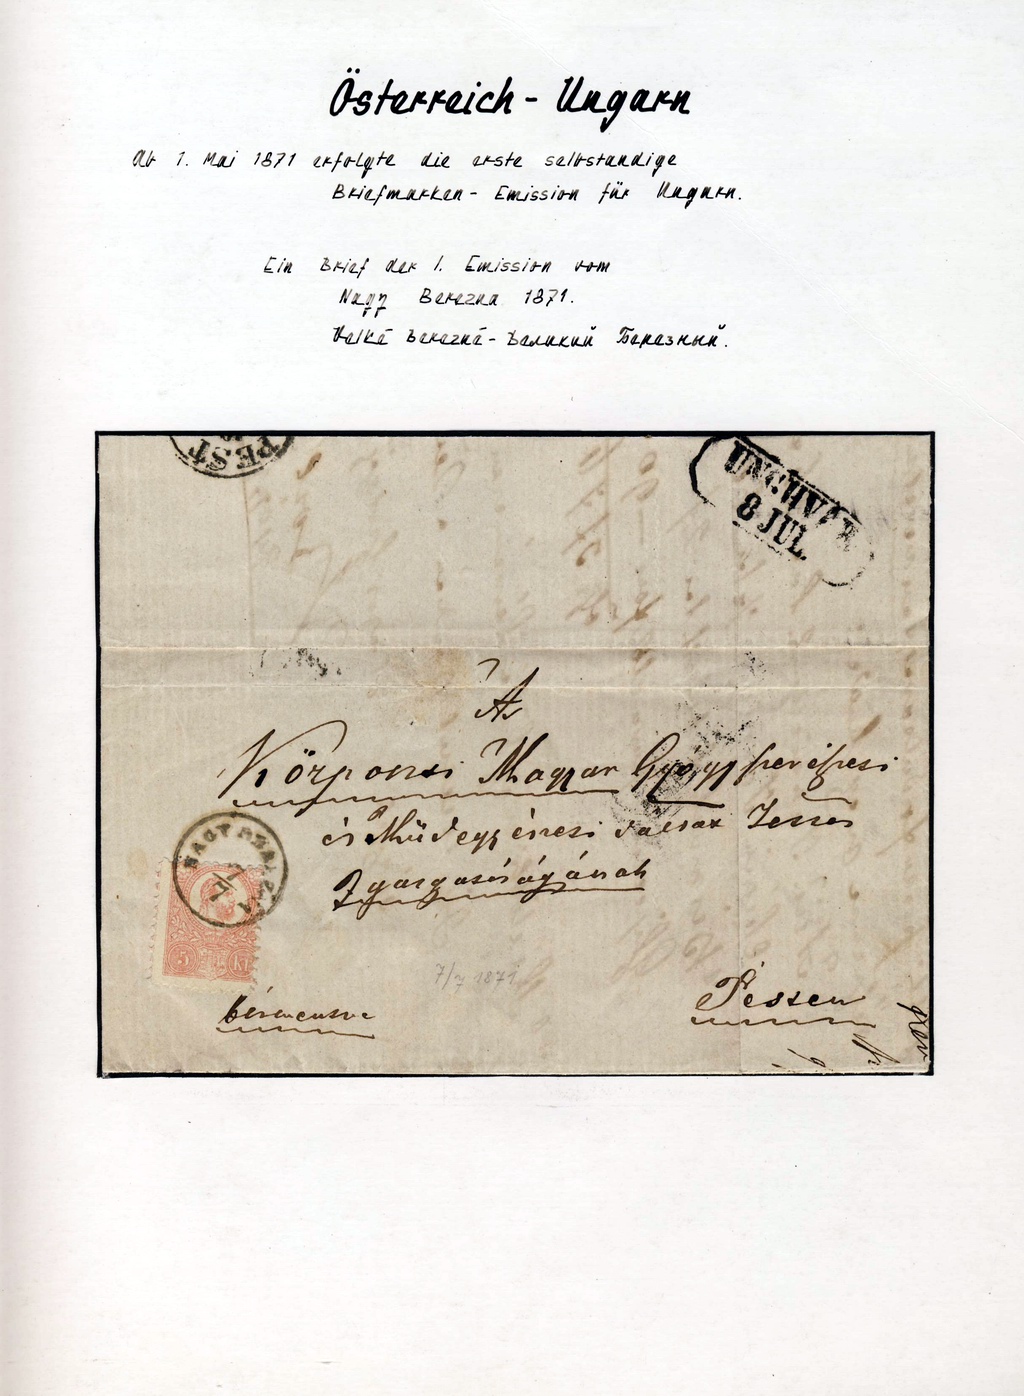 Österreich - Ungarn
Ab 1. Mai 1871 erfolgte die erste selbständige
Briefmarken - Emission für Ungarn.
Ein Brief der I. Emission vom
Nagy Berezna 1871.
Velké Berezné - Великий Березный.
PEST
UNGHVÁR
8 JUL.
A
Központi Magyar Gyógyszerészi
és Műegy
Igazgatóságának
NAGY BEREZNA
7/7
5 KR
7/7 1871
bérmentve
Pesten